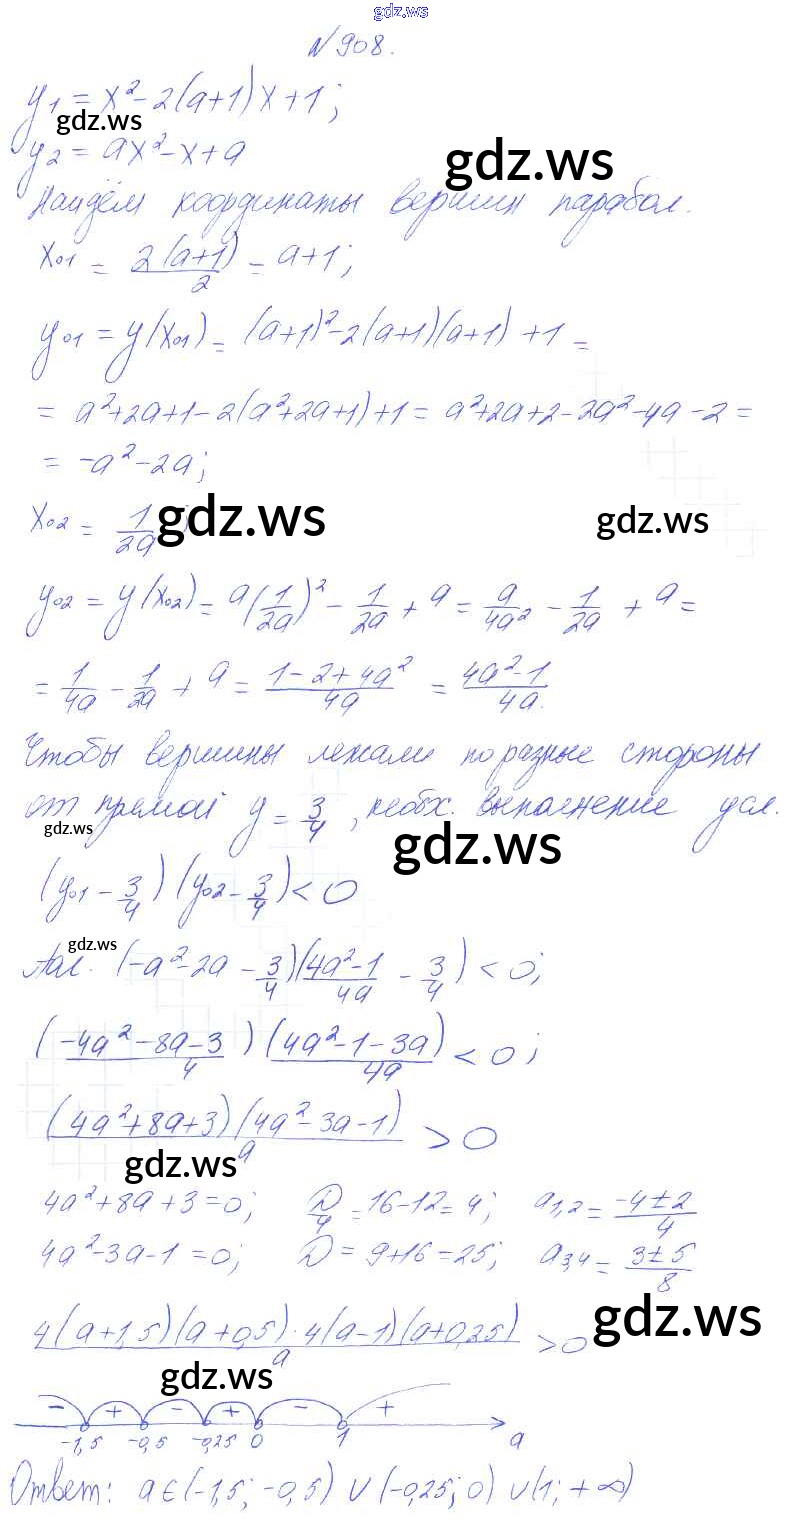 gdz.ws
№908.
y₁ = x² - 2(a+1)x + 1;
gdz.ws
y₂ = ax² - x + a
gdz.ws
Найдём координаты вершин парабол.
x₀₁ = 2(a+1)/2 = a+1;
y₀₁ = y(x₀₁) = (a+1)² - 2(a+1)(a+1) + 1 =
= a²+2a+1-2(a²+2a+1)+1 = a²+2a+2-2a²-4a-2 =
= -a²-2a;
x₀₂ = 1/2a gdz.ws gdz.ws
y₀₂ = y(x₀₂) = a(1/2a)² - 1/2a + a = a/4a² - 1/2a + a =
= 1/4a - 1/2a + a = 1-2+4a²/4a = 4a²-1/4a.
Чтобы вершины лежали по разные стороны
от прямой y = 3/4, необх. выполнение усл.
gdz.ws gdz.ws
(y₀₁ - 3/4)(y₀₂ - 3/4) < 0
gdz.ws
(-a²-2a - 3/4)(4a²-1/4a - 3/4) < 0;
(-4a²-8a-3/4)(4a²-1-3a)/4a < 0;
(4a²+8a+3)(4a²-3a-1)/a > 0
gdz.ws
4a²+8a+3=0; D/4 = 16-12 = 4; a₁,₂ = -4±2/4
4a²-3a-1=0; D = 9+16 = 25; a₃,₄ = 3±5/8
gdz.ws
4(a+1,5)(a+0,5)·4(a-1)(a+0,25)/a > 0
gdz.ws
- + - + - +
-1,5 -0,5 -0,25 0 1 a
Ответ: a∈(-1,5; -0,5) ∪ (-0,25; 0) ∪ (1; +∞)